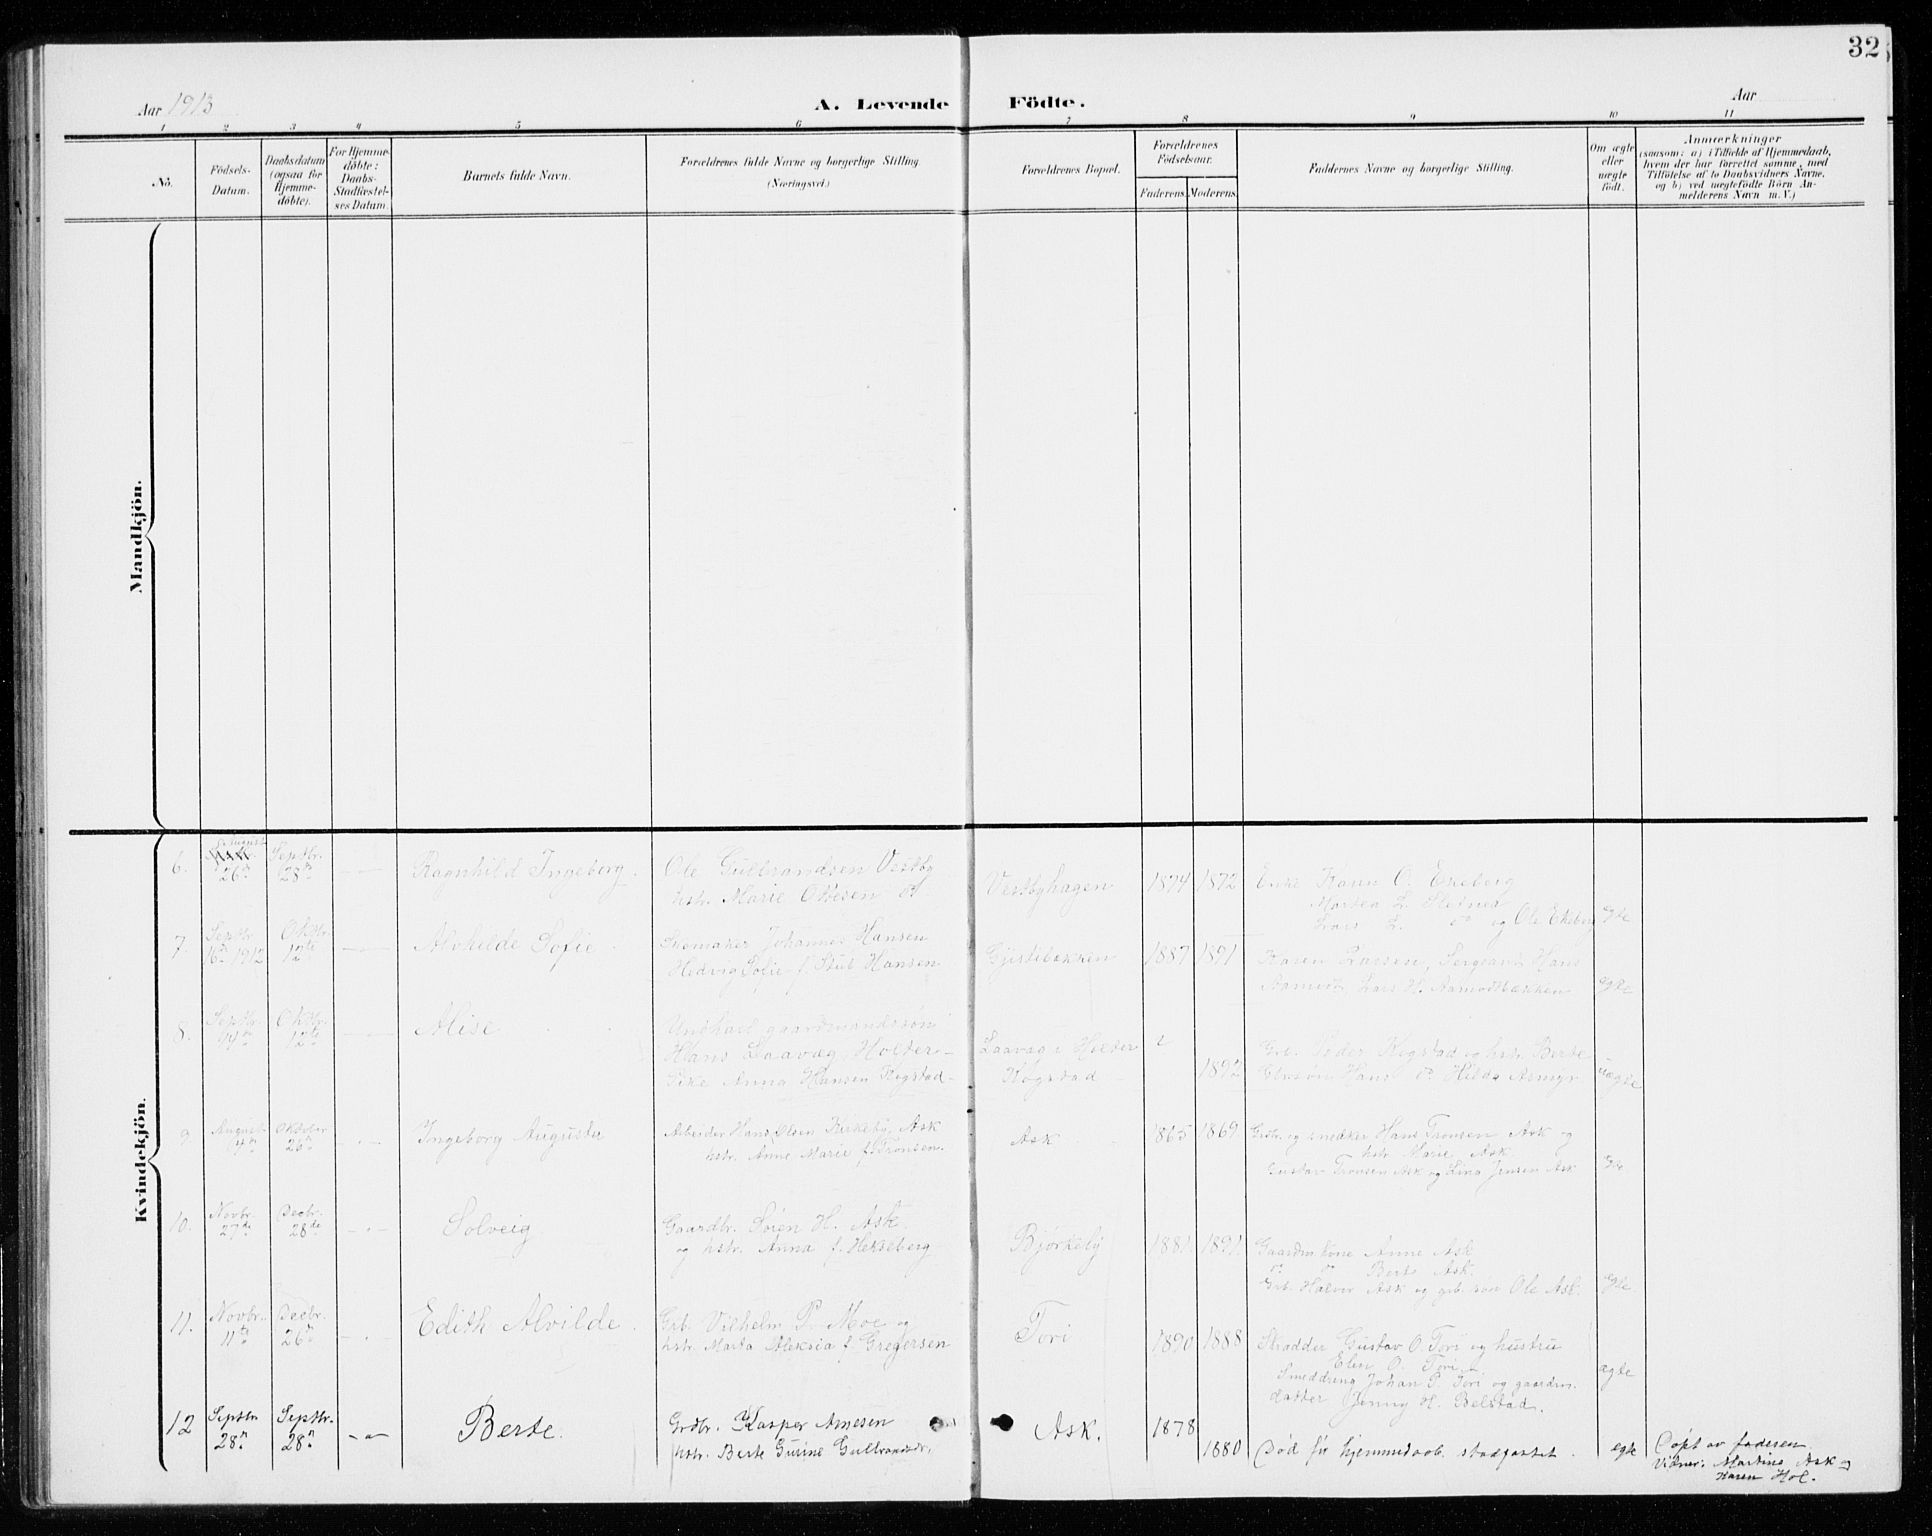 32
Aar 1913
A. Levende Födte.
Aar
1 2 3 4 5 6 7 8 9 10 11
No.
Födsels-
Datum.
Daabsdatum
(ogsaa for
Hjemme-
døbte).
For Hjemme-
døbte:
Daabs-
Stadfæstel-
ses Datum.
Barnets fulde Navn.
Forældrenes fulde Navne og borgerlige Stilling
(Næringsvei.)
Forældrenes Bopæl.
Forældrenes
Födselsaar.
Faderens. Moderens.
Faddernes Navne og borgerlige Stilling.
Om ægte
eller
uægte
født.
Anmærkninger
(saasom: a) i Tilfælde af Hjemmedaab,
hvem der har forrettet samme, med
Tilföielse af to Daabsvidners Navne,
og b) ved uægtefödte Börn An-
melderens Navn m. V.)
Mandkjön.
Kvindekjön.
6. August 26de Septbr. 28de Ragnhild Ingeborg.
Ole Gulbrandsen Vestby
hstr. Marie Olsen do
Vestbyhagen 1874 1872
Enke Karen O. Ekeberg
Marten L.
Lars L. do og Ole Ekeberg egte
7. Septbr. 16de 1912 Oktbr. 12te Alvhilde Sofie
Skomaker Johannes Hansen
Hedvig Sofie f. Stub Hansen
1887 1891
Karen Larsen, Sergeant Hans
Aamodt, Lars H. Aamodtbakken egte
8. Septbr. 14de Oktbr. 12te Alise
Ungkarl gaardmandssøn
Hans Laavæg Holter
Pike Anna Hansen Kogstad
Laavæg i Holter
Kogstad
1892
Grb. Peder Kogstad og hstr. Berte
Hans do. Hilda Asmyr uægte
9. August 14de Oktober 26de Ingeborg Augusta
Arbeider Hans Olsen Kirkeby, Ask
hstr. Anne Marie f. Tronsen.
Ask 1865 1869
Grdbr. og snedker Hans Tronsen Ask og
hstr. Marie Ask
Gustav Tronsen Ask og Lina Jensen Ask egte
10. Novbr. 27de Decbr. 28de Solveig
Gaardbr. Søren H. Ask
og hstr. Anna f. Hekseberg
Bjørkeby 1881 1891
Gaardm.kone Anne Ask
do do Berte Ask
Grb. Halvor Ask og grb. søn Ole Ask. egte
11. Novbr. 11te Decbr. 26de Edith Alvilde.
Grb. Vilhelm P. Moe og
hstr. Marta Aleksia f. Gregersen
Tori 1890 1888
Skrædder Gustav O. Tori og hustru
Elen O. Tori
Smeddreng Johan P. Tori og gaardm.
datter Jenny H. Belstad. ægte
12 Septbr. 28de Septbr. 28de Berte.
Grdbr. Kasper Arnesen
hstr. Berte Gurine Gulbrandsdr.
Ask. 1878
1880 Død før hjemmedaab. stadfæstet. egte
Døpt av faderen
Vidner: Martine Ask og
Karen Hol.